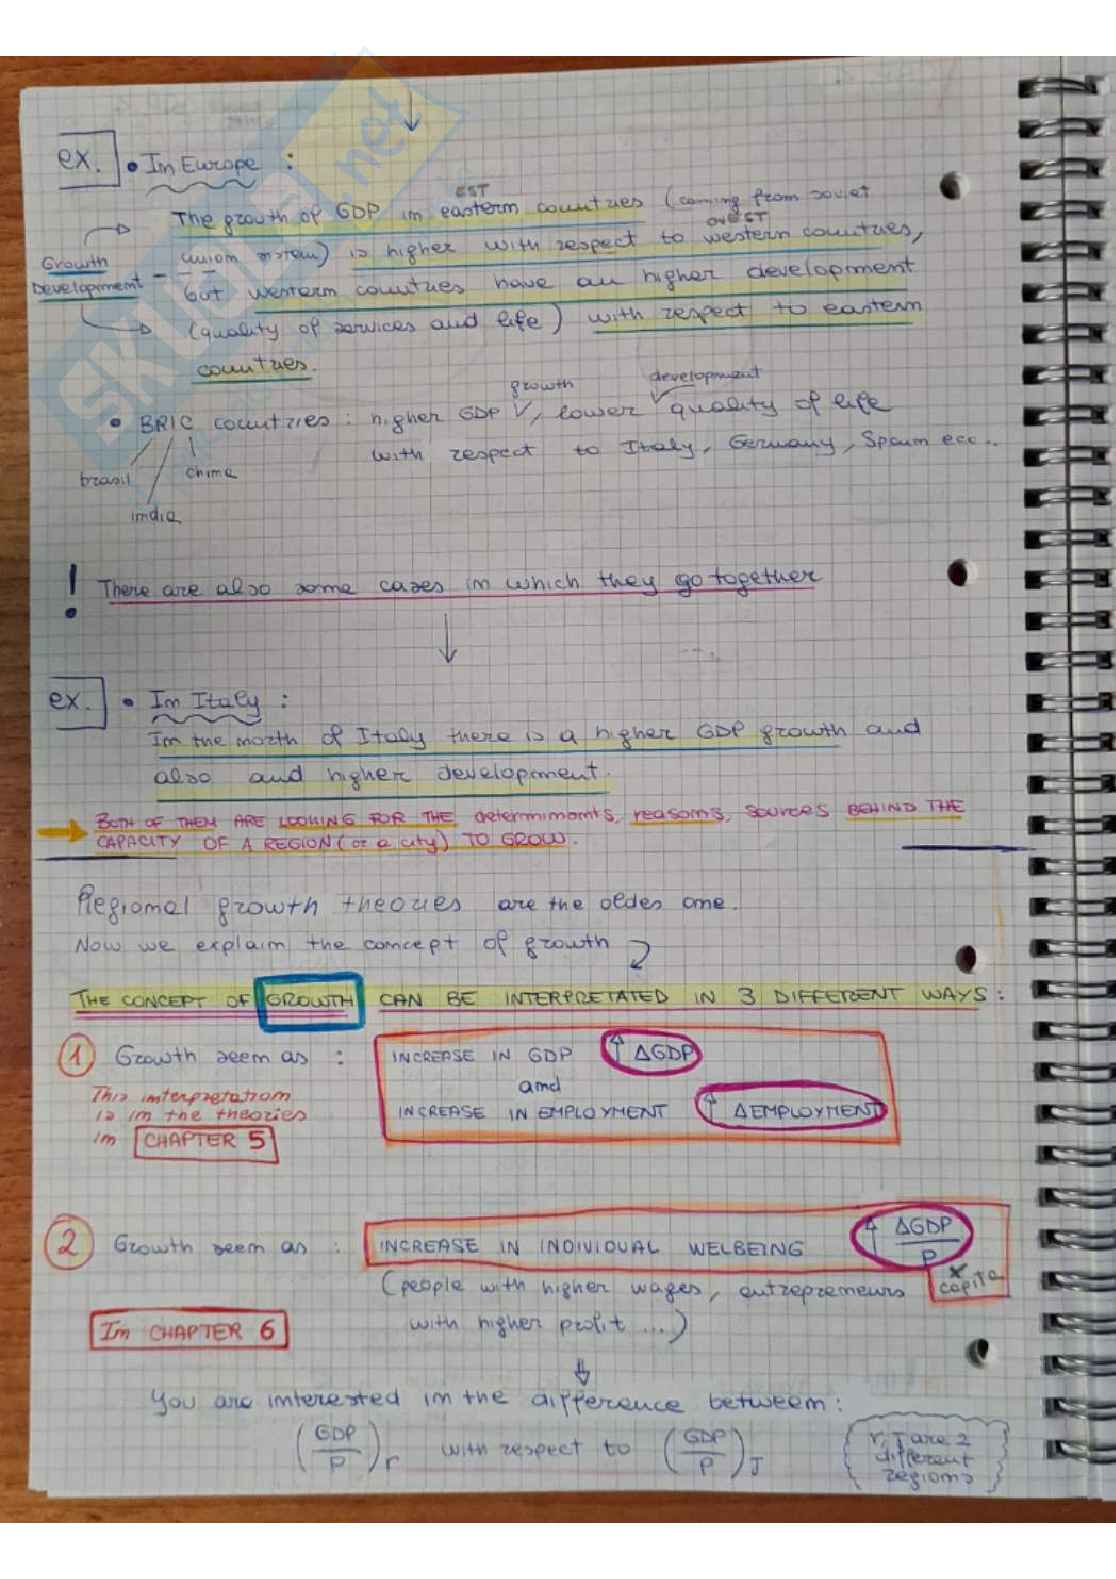 SKUOLA.net
ex. • In Europe :
EST
The growth of GDP in eastern countries (coming from soviet
OVEST
union system) is higher with respect to western countries,
Growth
Development
but western countries have an higher development
(quality of services and life) with respect to eastern
countries.
growth development
• BRIC countries : higher GDP, lower quality of life
with respect to Italy, Germany, Spain ecc..
brasil china
india
! There are also some cases in which they go together
ex. • In Italy :
In the north of Italy there is a higher GDP growth and
also and higher development.
BOTH OF THEM ARE LOOKING FOR THE determinants, reasons, sources BEHIND THE
CAPACITY OF A REGION (or a city) TO GROW.
Regional growth theories are the oldes one.
Now we explain the concept of growth
THE CONCEPT OF GROWTH CAN BE INTERPRETATED IN 3 DIFFERENT WAYS :
1 Growth seen as : INCREASE IN GDP ↑ ΔGDP
and
INCREASE IN EMPLOYMENT ↑ ΔEMPLOYMENT
This interpretation
is in the theories
in CHAPTER 5
2 Growth seen as : INCREASE IN INDIVIDUAL WELBEING ↑ ΔGDP/P
(people with higher wages, entrepreneurs
x capita
with higher profit ...)
In CHAPTER 6
You are interested in the difference between :
(GDP/P)r with respect to (GDP/P)J
r, J are 2
different
regions